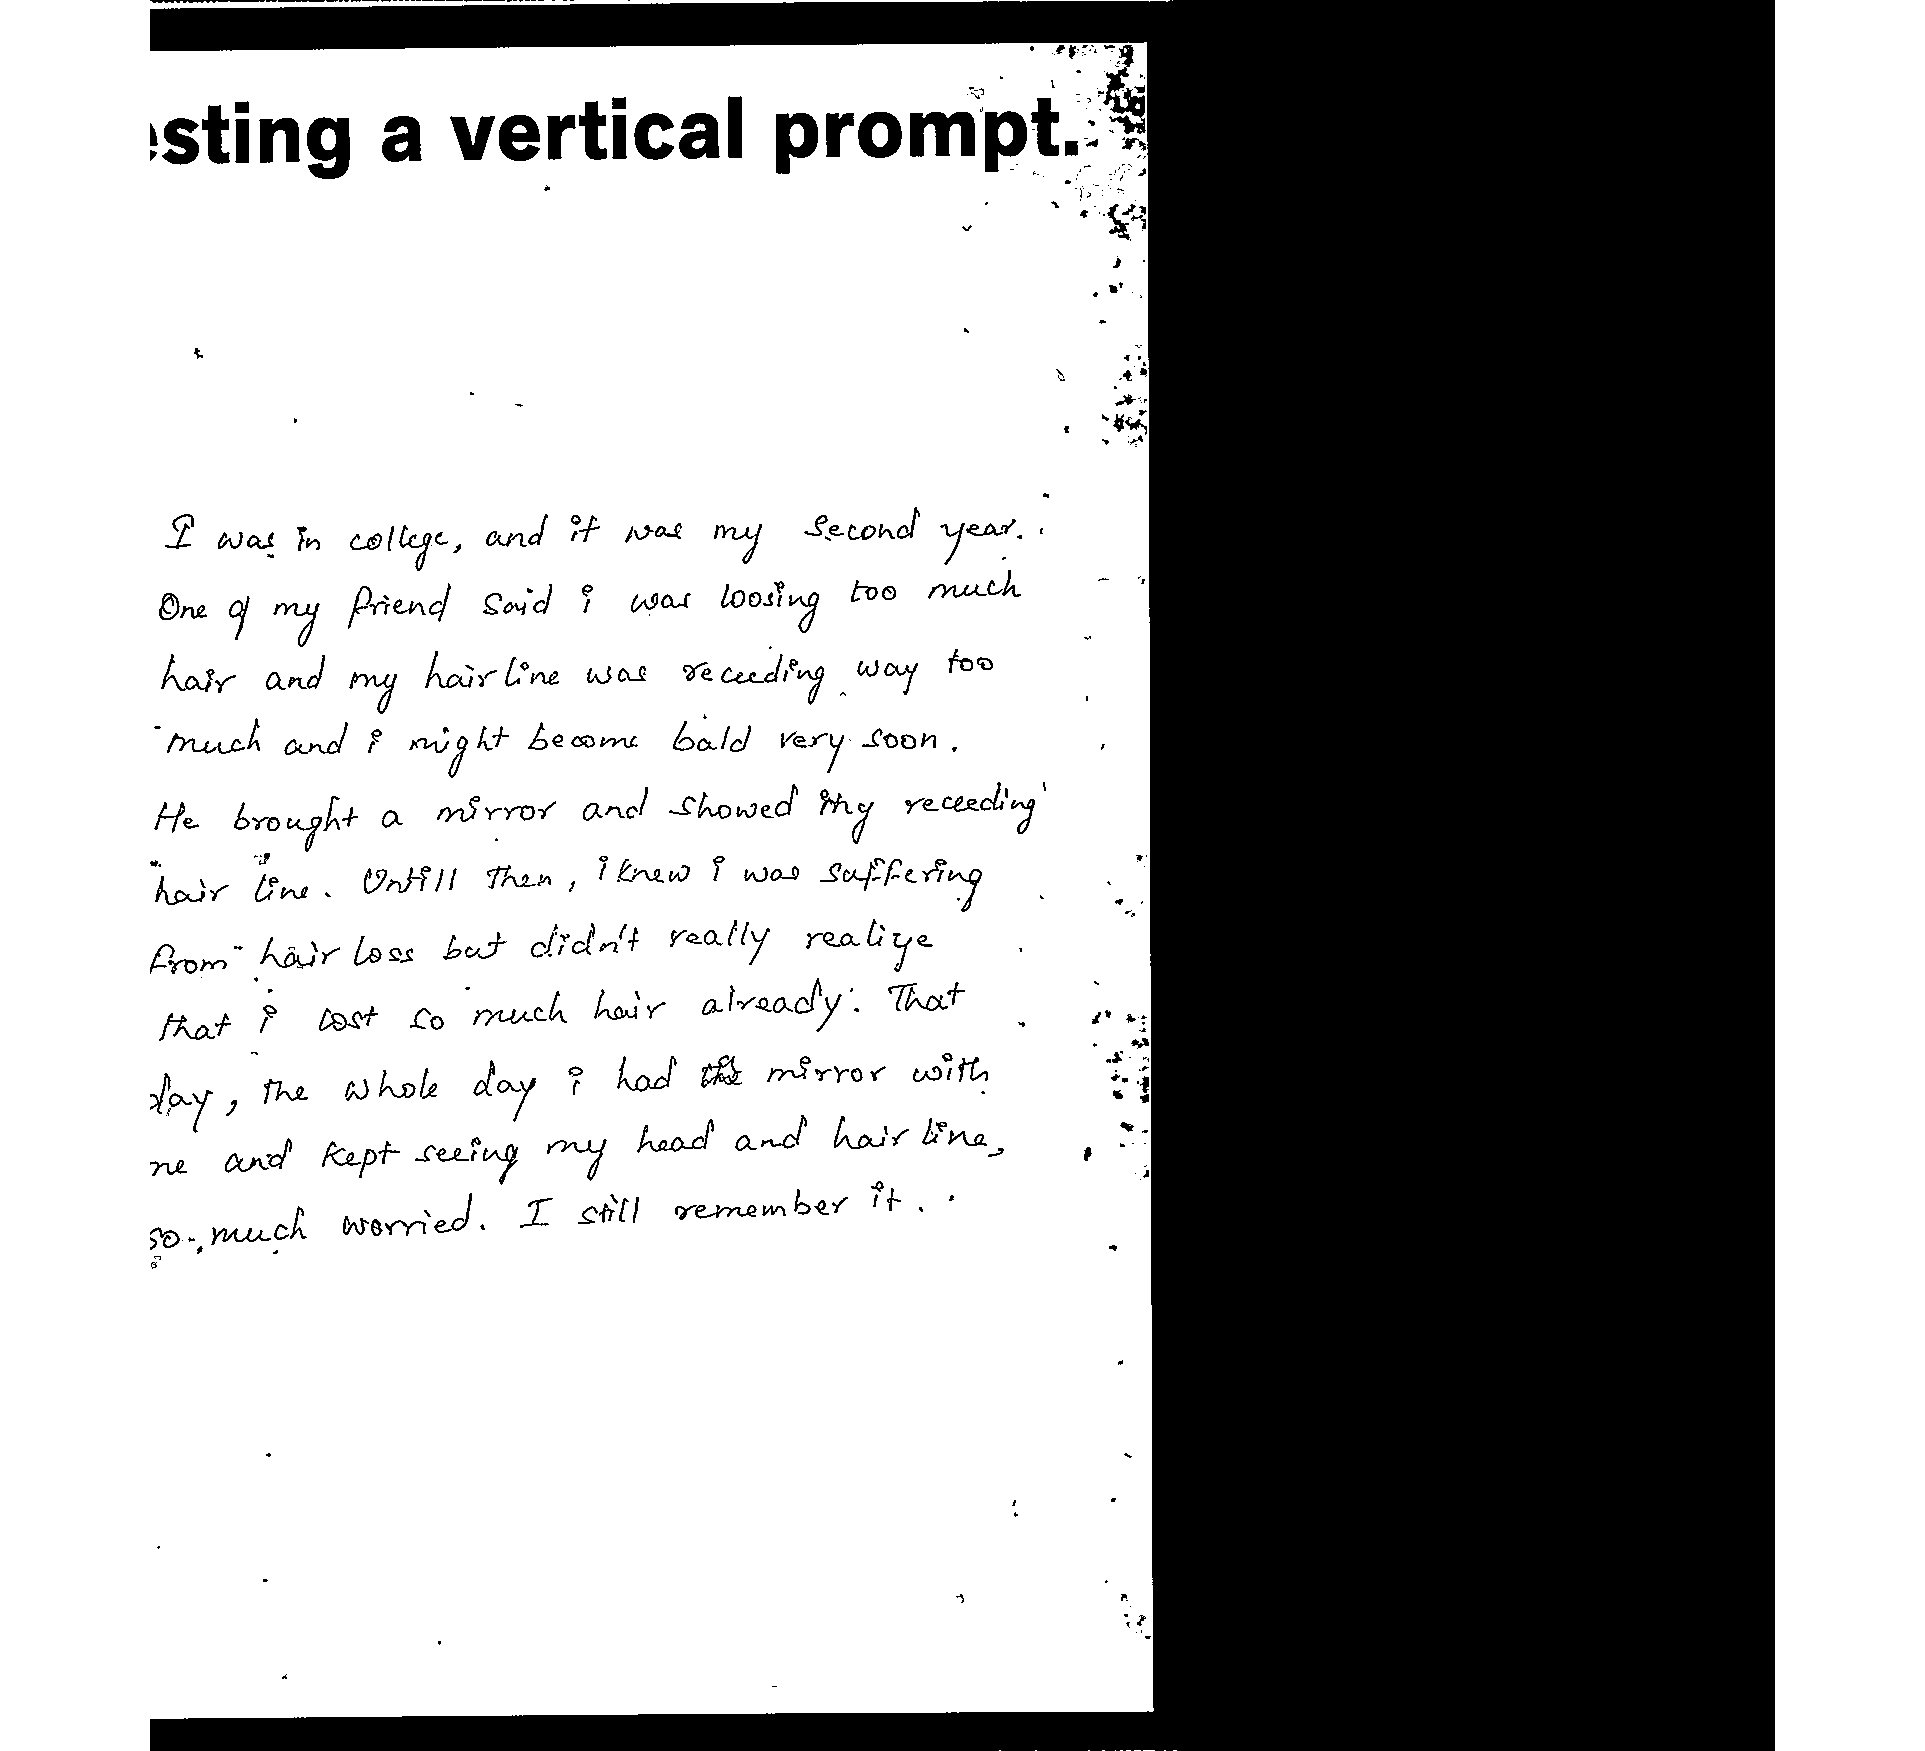 esting a vertical prompt.
I was in college, and it was my second year.
One of my friend said i was loosing too much
hair and my hairline was receeding way too
much and i might become bald very soon.
He brought a mirror and showed my receeding
hair line. Untill then, i knew i was suffering
from hair loss but didn't really realize
that i lost so much hair already. That
day, the whole day i had the mirror with
me and kept seeing my head and hair line,
so much worried. I still remember it.